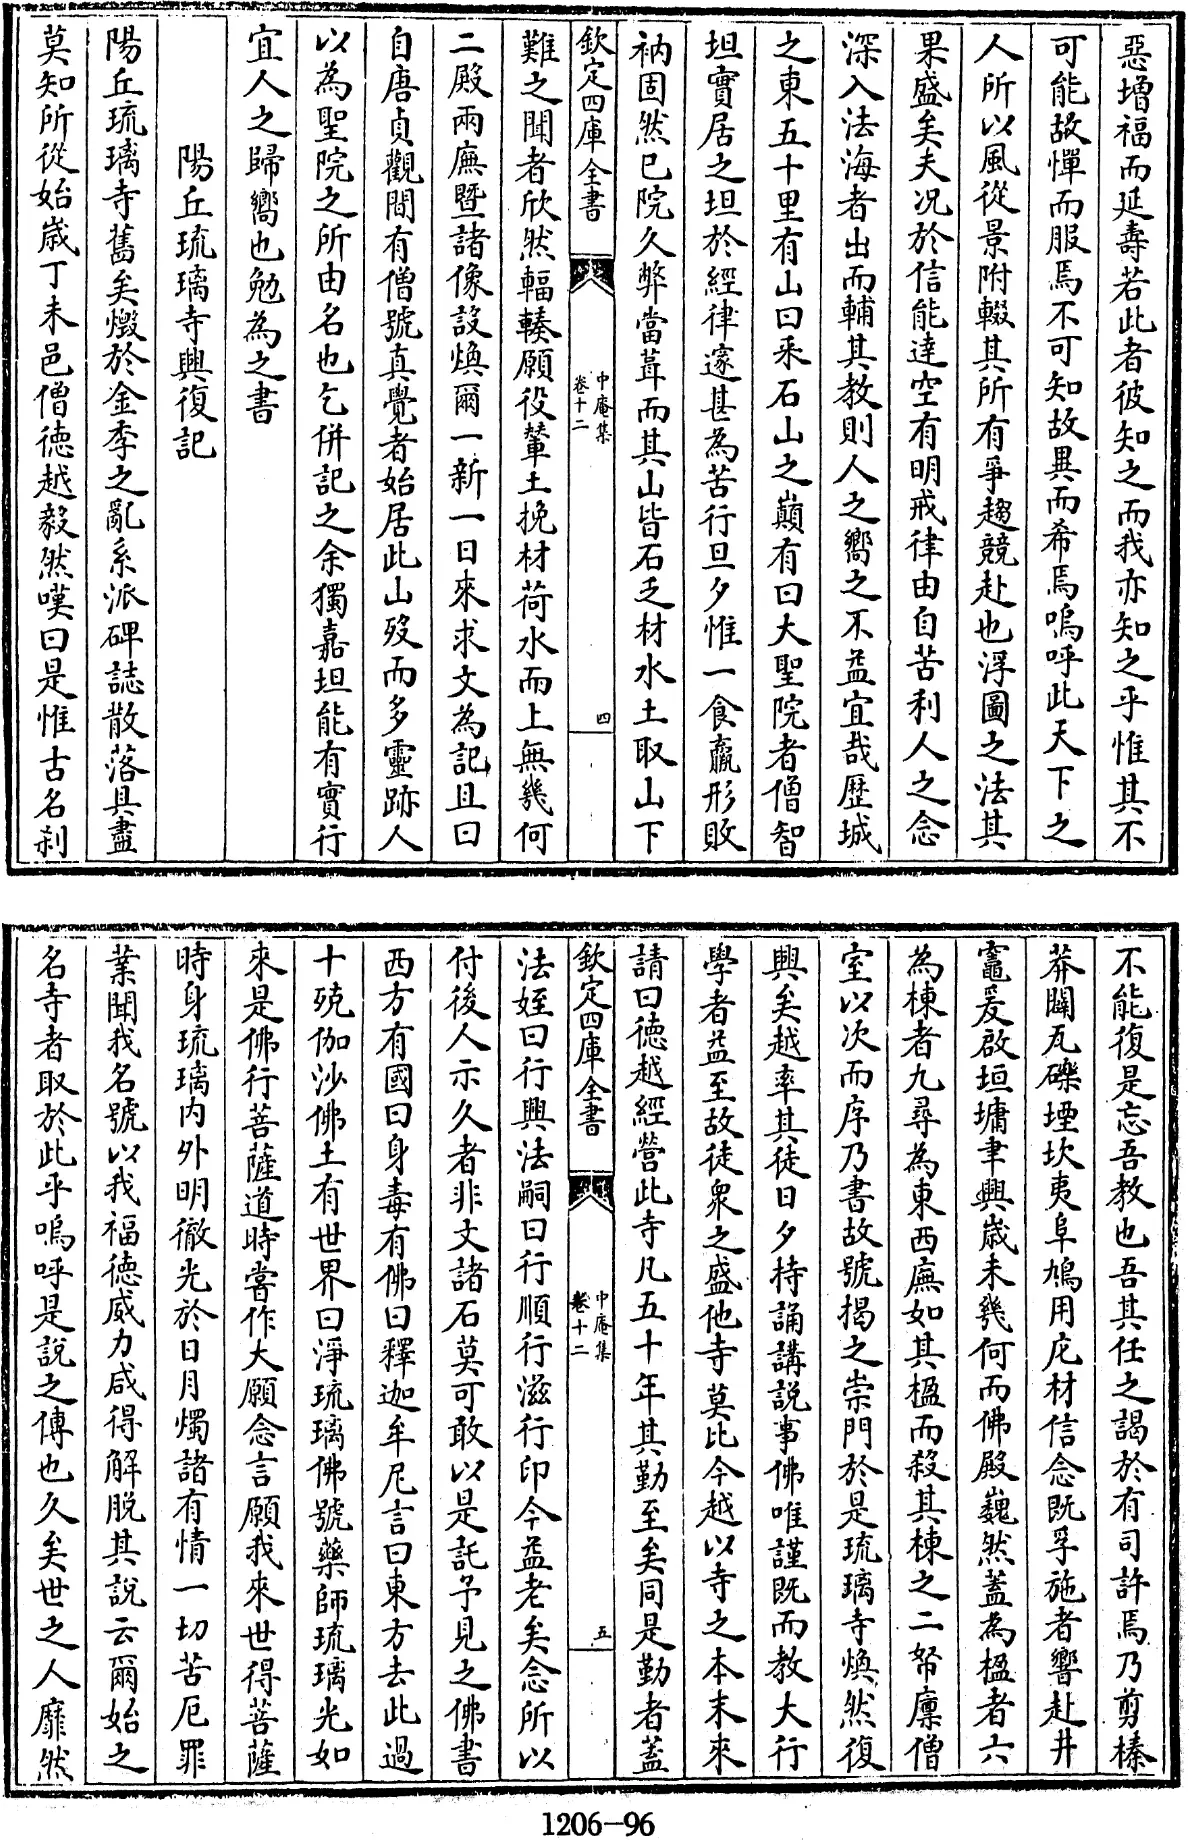 惡增福而延壽若此者彼知之而我亦知之乎惟其不
可能故憚而服焉不可知故異而希焉嗚呼此天下之
人所以風從景附輟其所有爭趨競赴也浮圖之法其
果盛矣夫况於信能達空有明戒律由自苦利人之念
深入法海者出而輔其教則人之嚮之不益宜哉歴城
之東五十里有山曰釆石山之巔有曰大聖院者僧智
坦實居之坦於經律邃甚為苦行旦夕惟一食羸形敗
衲固然已院久弊當葺而其山皆石乏材水土取山下
欽定四庫全書
中庵集
卷十二
四
難之聞者欣然輻輳願役輦土挽材荷水而上無幾何
二殿兩廡暨諸像設煥爾一新一日來求文為記且曰
自唐貞觀間有僧號真覺者始居此山歿而多靈跡人
以為聖院之所由名也乞併記之余獨嘉坦能有實行
宜人之歸嚮也勉為之書
陽丘琉璃寺興復記
陽丘琉璃寺舊矣燬於金季之亂系派碑誌散落具盡
莫知所從始歲丁未邑僧德越毅然嘆曰是惟古名刹
不能復是忘吾教也吾其任之謁於有司許焉乃剪榛
莽闢瓦礫堙坎夷阜鳩用庀材信念既孚施者響赴井
竈爰啟垣墉聿興歲未幾何而佛殿巍然蓋為楹者六
為棟者九尋為東西廡如其楹而殺其棟之二帑廩僧
室以次而序乃書故號揭之崇門於是琉璃寺煥然復
興矣越率其徒日夕持誦講説事佛唯謹既而教大行
學者益至故徒衆之盛他寺莫比今越以寺之本末來
請曰德越經營此寺凡五十年其勤至矣同是勤者蓋
欽定四庫全書
中庵集
卷十二
五
法姪曰行興法嗣曰行順行滋行印今益老矣念所以
付後人示久者非文諸石莫可敢以是託予見之佛書
西方有國曰身毒有佛曰釋迦牟尼言曰東方去此過
十殑伽沙佛土有世界曰淨琉璃佛號藥師琉璃光如
來是佛行菩薩道時嘗作大願念言願我來世得菩薩
時身琉璃内外明徹光於日月燭諸有情一切苦厄罪
業聞我名號以我福德威力咸得解脱其説云爾始之
名寺者取於此乎嗚呼是説之傳也久矣世之人靡然
1206-96